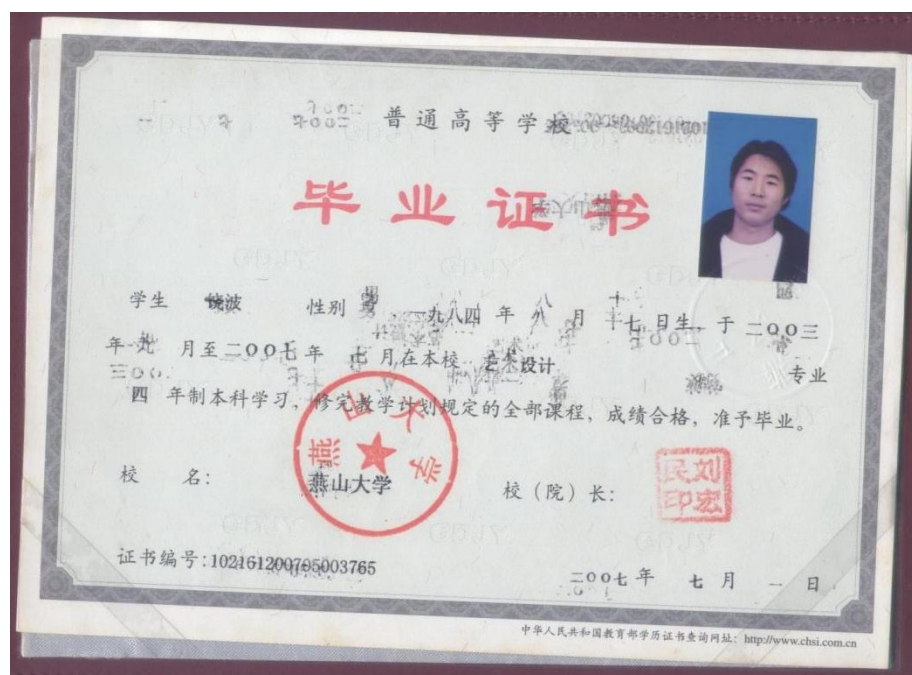 普通高等学校
毕业证书
学生 饶波 性别 男，一九八四年八月十七日生，于二〇〇三
年九月至二〇〇七年七月在本校 艺术设计 专业
四年制本科学习，修完教学计划规定的全部课程，成绩合格，准予毕业。
校 名：燕山大学 校（院）长：刘宏民印
燕山大学
证书编号：102161200705003765
二〇〇七年 七月 一日
中华人民共和国教育部学历证书查询网址：http://www.chsi.com.cn